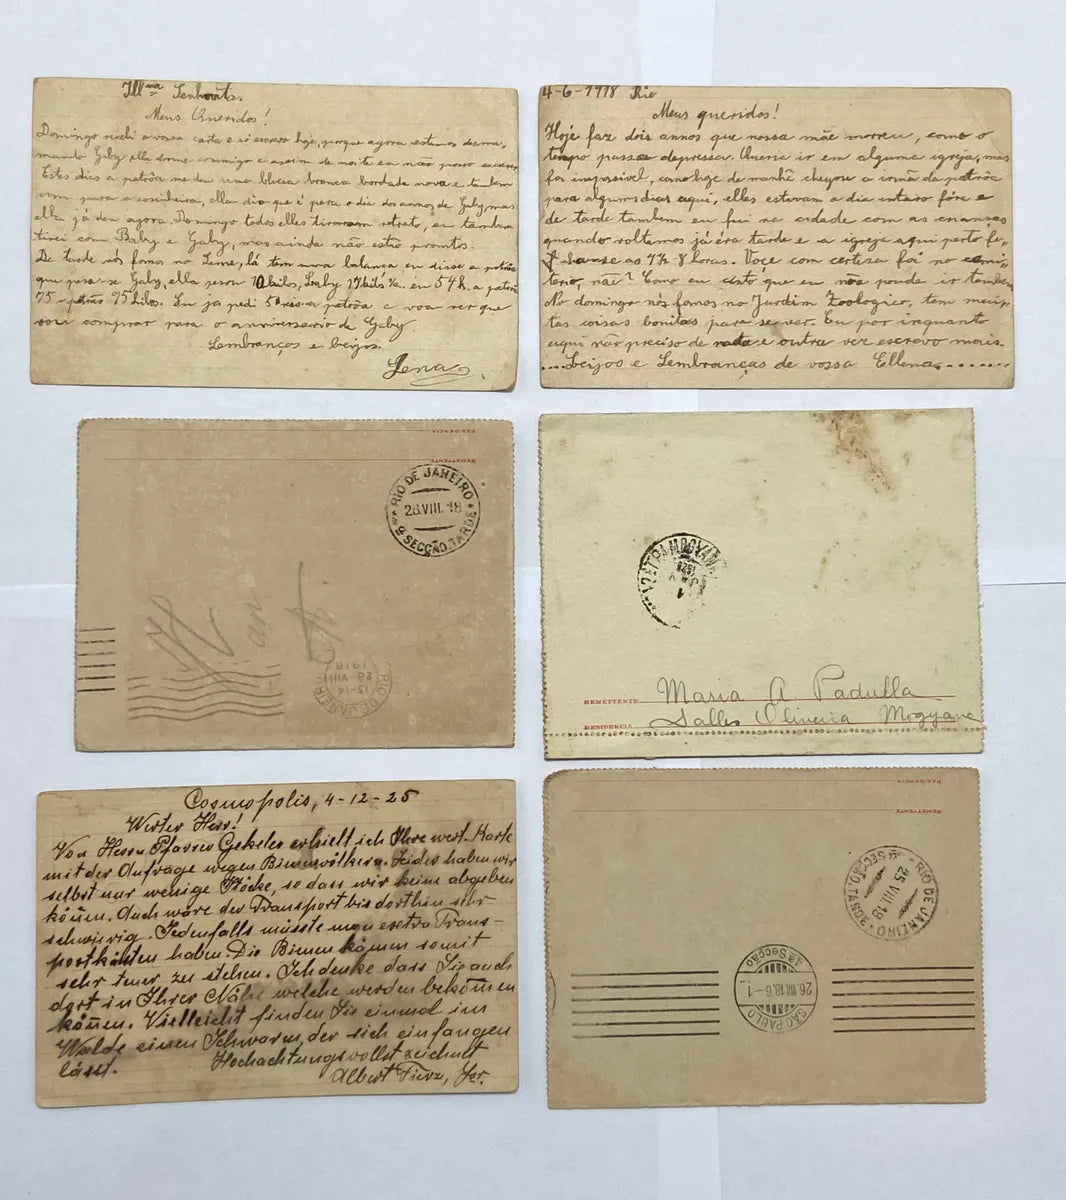 Ill^ma Senhorita.
Meus Queridos!
Domingo recebi a vossa carta e si escrevo hoje, porque agora estamos desma,
mando Gaby, ella dorme commigo e assim de noite eu não posso escrever.
Estes dias a patrôa me deu uma blusa branca bordada nova e tambem
uma para a cosinheira, ella diz que é para o dia dos annos de Gaby mas
ella já deu agora. Domingo todos elles tiraram retrato, eu tambem
tirei com Baby e Gaby, mas ainda não estão prontos.
De tarde nós fomos no Leme, lá tem uma balança eu disse a patrôa
que pesa-se Gaby, ella pesou 10 kilos, Baby 17 kilos ½, eu 54 k. a patrôa
75 e patrão 75 kilos. Eu ja pedi 5 a patrôa e vou ver que
vou comprar para o anniversario de Gaby.
Lembranças e beijos.
Lena.
4-6-1918 Rio
Meus queridos!
Hoje faz dois annos que nossa mãe morreu, como o
tempo passa depressa. Queria ir em alguma igreja, mas
foi impossivel, como hoje de manhã chegou a irmã da patrôa
para alguns dias aqui, elles estavam a dia intairo fóra e
de tarde tambem eu fui na cidade com as crianças
quando voltamos já éra tarde e a igreja aqui perto fe-
chava-se as 7½ 8 horas. Voce com certesa foi no cemi-
terio, não? Como eu não poude ir tambem
No domingo nós fomos no Jardim Zoologico, tem mui-
tas coisas bonitas para se ver. Eu por inquanto
aqui não preciso de nada e outra vez escrevo mais.
....Beijos e Lembranças de vossa Ellena.......
RESIDENCIA
REMETTENTE
RIO DE JANEIRO
28.VIII.18
9ª SECÇÃO.TARDE
RIO DE JANEIRO
13-14
28 VIII
1918
MOGYANA
1
REMETTENTE Maria A. Padulla
RESIDENCIA Salles Oliveira Mogyana
Cosmopolis, 4-12-25
Werter Herr!
Von Herrn Pfarrer Gekeler erhielt ich Ihre wert. Karte
mit der Anfrage wegen Bienenvölkern. Leider haben wir
selbst nur wenige Stöcke, so dass wir keine abgeben
können. Auch wäre der Transport bis dorthin sehr
schwierig. Jedenfalls müsste man extra Trans-
portkästen haben. Die Bienen kämen somit
sehr teuer zu stehen. Ich denke dass Sie auch
dort in Ihrer Nähe welche werden bekommen
können. Vielleicht finden Sie einmal im
Walde einen Schwarm, der sich einfangen
lässt.
Hochachtungsvollst zeichnet
Albert
RESIDENCIA
REMETTENTE
RIO DE JANEIRO
25 VIII 18
9ª SECÇÃO.TARDE
1ª Secção
26 VIII 18.6-1
SÃO PAULO